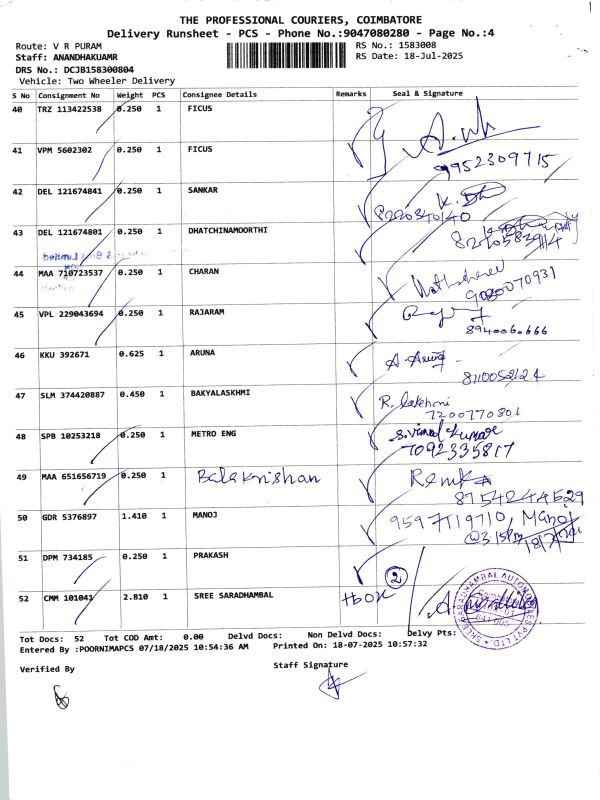 THE PROFESSIONAL COURIERS, COIMBATORE
Delivery Runsheet - PCS - Phone No.:9047080280 - Page No.:4
Route: V R PURAM
RS No.: 1583008
Staff: ANANDHAKUAMR
RS Date: 18-Jul-2025
DRS No.: DCJB158300804
Vehicle: Two Wheeler Delivery
S No Consignment No Weight PCS Consignee Details Remarks Seal & Signature
40 TRZ 113422538 0.250 1 FICUS
41 VPM 5602302 0.250 1 FICUS 9952309715
42 DEL 121674841 0.250 1 SANKAR 8220340140
43 DEL 121674801 0.250 1 DHATCHINAMOORTHI
44 MAA 710723537 0.250 1 CHARAN
45 VPL 229043694 0.250 1 RAJARAM 8940060666
46 KKU 392671 0.625 1 ARUNA A. Aruna
47 SLM 374420887 0.450 1 BAKYALASKHMI R. lakshmi 7200770801
48 SPB 10253218 0.250 1 METRO ENG S. Vimal Kumar 7092335817
49 MAA 651656719 0.250 1 Balakrishan 8754244529
50 GDR 5376897 1.410 1 MANOJ 9597119710, Manoj
51 DPM 734185 0.250 1 PRAKASH
52 CMM 101041 2.810 1 SREE SARADHAMBAL 2
Tot Docs: 52 Tot COD Amt: 0.00 Delvd Docs: Non Delvd Docs: Delvy Pts:
Entered By :POORNIMAPCS 07/18/2025 10:54:36 AM Printed On: 18-07-2025 10:57:32
Verified By
Staff Signature